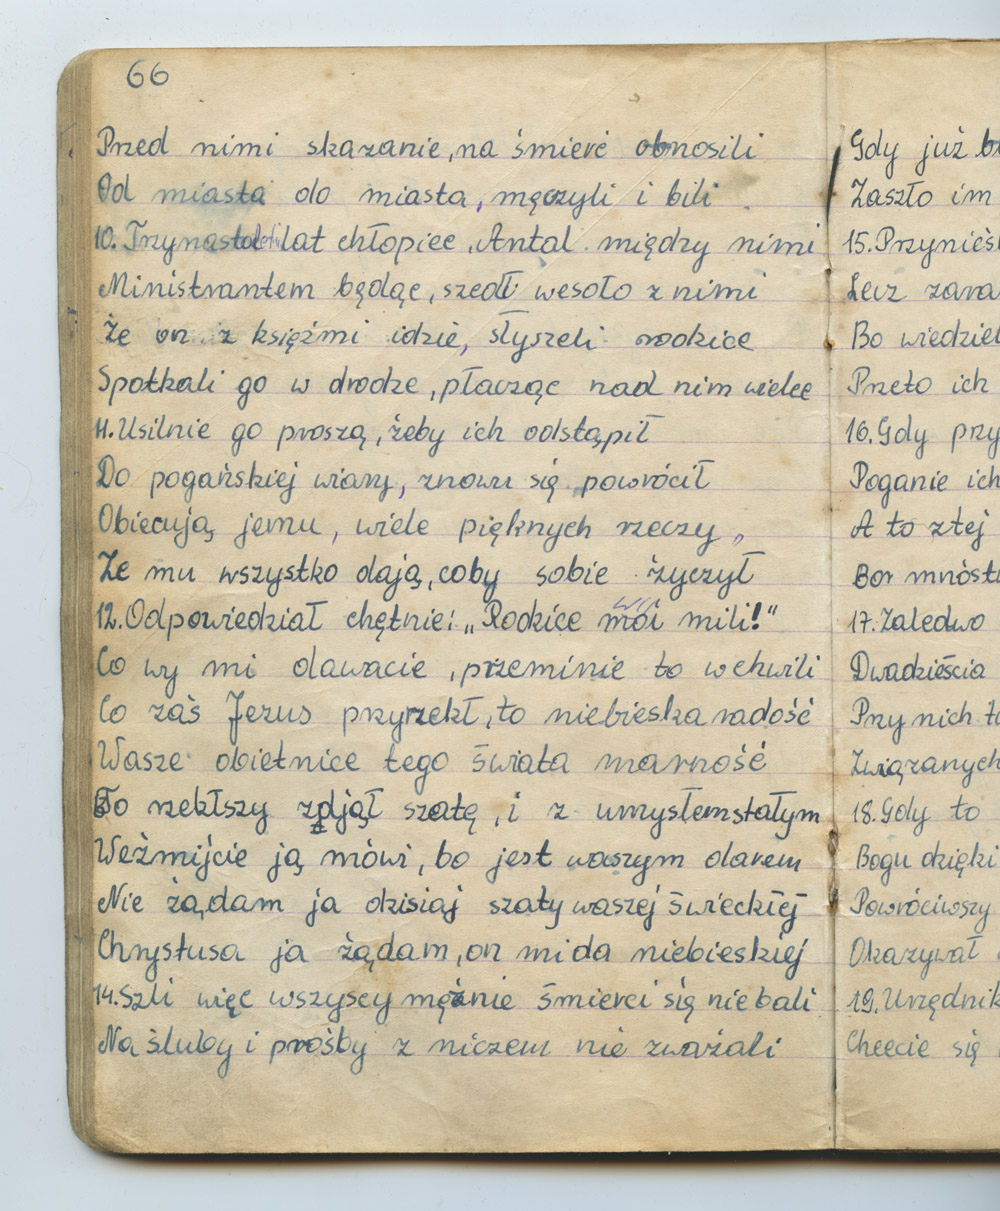 66
Przed nimi skazanie, na śmierć obnosili
Od miasta do miasta, męczyli i bili
10. Trzynasto lat chłopiec, Antal między nimi
Ministrantem będąc, szedł wesoło z nimi
Że on z księżmi idzie, słyszeli rodzice
Spotkali go w drodze, płacząc nad nim wielce
11. Usilnie go proszą, żeby ich odstąpił
Do pogańskiej wiary, znowu się powrócił
Obiecują jemu, wiele pięknych rzeczy,
Ze mu wszystko dają, coby sobie życzył
12. Odpowiedział chętnie: „Rodzice moi mili!"
Co wy mi dawacie, przeminie to w chwili
Co zaś Jezus przyrzekł, to niebieska radość
Wasze obietnice tego świata marność
To rzekłszy zdjął szatę, i z umysłem stałym
Weźmijcie ją mówi, bo jest waszym darem
Nie żądam ja dzisiaj szaty waszej świeckiej
Chrystusa ja żądam, on mi da niebieskiej
14. Szli więc wszyscy mężnie śmierci się nie bali
Na śluby i prośby z niczem nie zważali
Gdy już
Zaszło im
15. Przynieśl
Lecz zara
Bo wiedziel
Przeto ich
16. Gdy przy
Poganie ich
A to z tej
Bor mnóst
17. Zaledwo
Dwadzieścia
Przy nich t
Związanych
18. Gdy to
Bogu dzięki
Powróciwszy
Okazywał
19. Urzędnik
Chcecie się